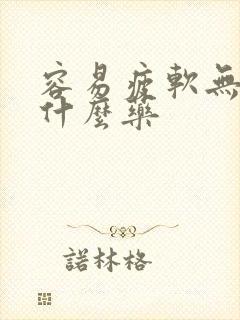 容易疲軟無
什麼藥
諾林格